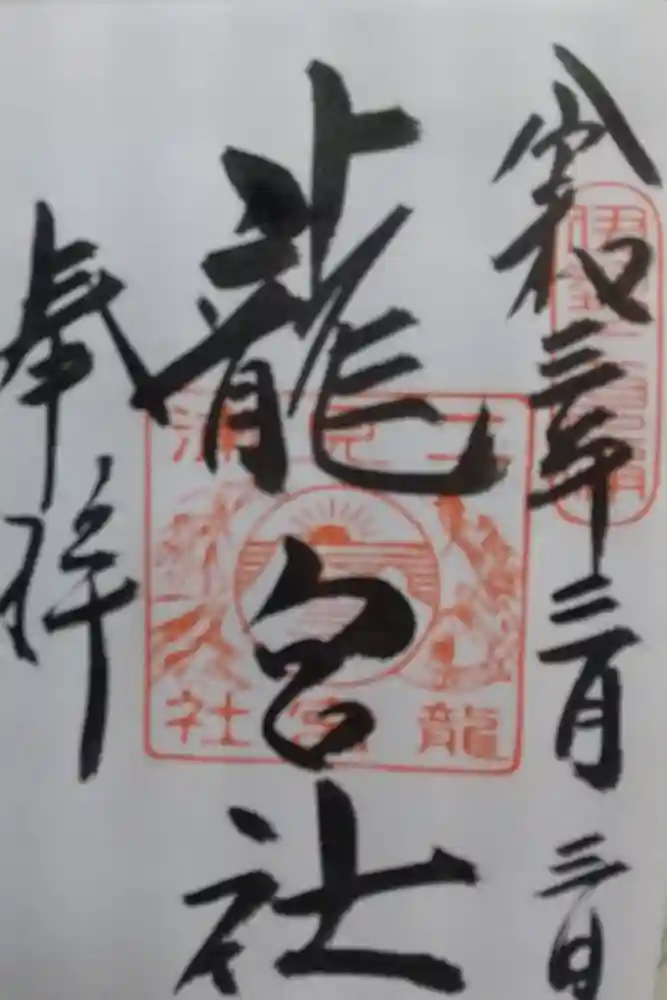 令和三年三月三日
龍宮社
奉拝
二見浦
龍宮社